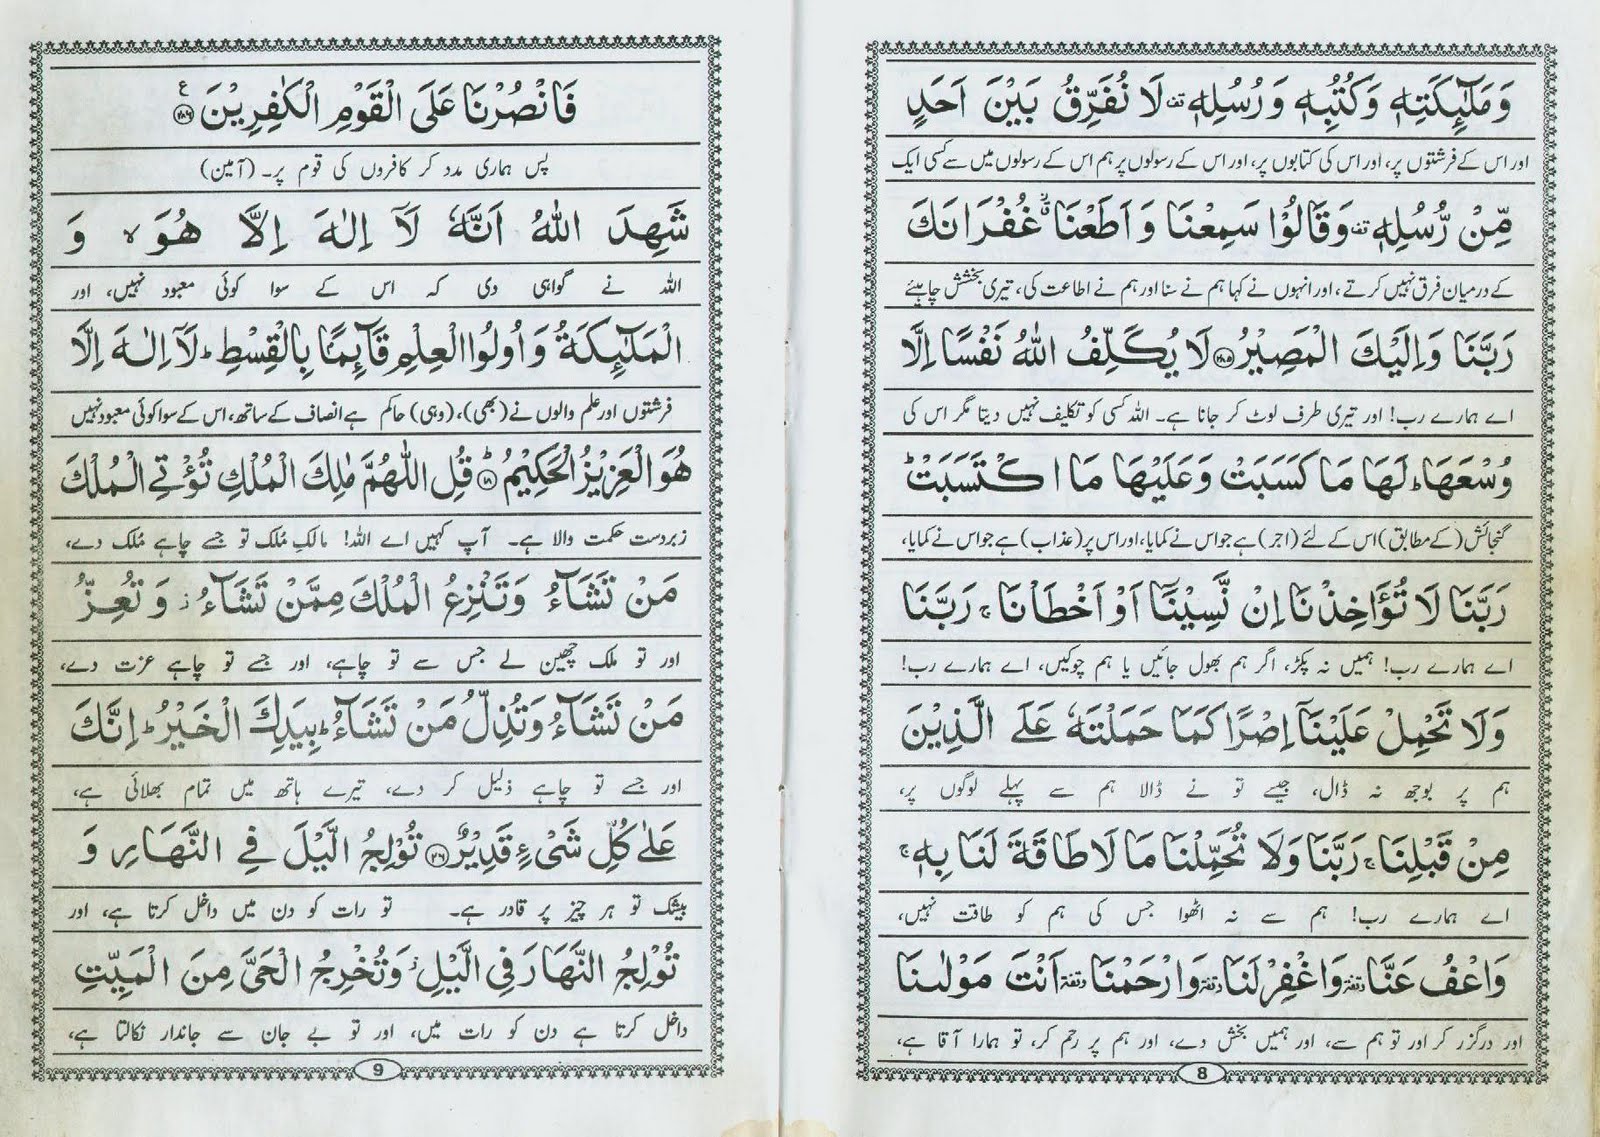 وَمَلٰٓئِكَتِهٖ وَكُتُبِهٖ وَرُسُلِهٖ قف لَا نُفَرِّقُ بَيْنَ اَحَدٍ
اور اس کے فرشتوں پر، اور اس کی کتابوں پر، اور اس کے رسولوں پر ہم اس کے رسولوں میں سے کسی ایک
مِّنْ رُّسُلِهٖ قف وَقَالُوْا سَمِعْنَا وَاَطَعْنَا غُفْرَانَكَ
کے درمیان فرق نہیں کرتے، اور انہوں نے کہا ہم نے سنا اور ہم نے اطاعت کی، تیری بخشش چاہئے
رَبَّنَا وَاِلَيْكَ الْمَصِيْرُ ﴿۲۸۵﴾ لَا يُكَلِّفُ اللّٰهُ نَفْسًا اِلَّا
اے ہمارے رب! اور تیری طرف لوٹ کر جانا ہے۔ اللہ کسی کو تکلیف نہیں دیتا مگر اس کی
وُسْعَهَا ؕ لَهَا مَا كَسَبَتْ وَعَلَيْهَا مَا اكْتَسَبَتْ ؕ
گنجائش (کے مطابق) اس کے لئے (اجر) ہے جو اس نے کمایا، اور اس پر (عذاب) ہے جو اس نے کمایا،
رَبَّنَا لَا تُؤَاخِذْنَا اِنْ نَّسِيْنَآ اَوْ اَخْطَاْنَا ۚ رَبَّنَا
اے ہمارے رب! ہمیں نہ پکڑ، اگر ہم بھول جائیں یا ہم چوکیں، اے ہمارے رب!
وَلَا تَحْمِلْ عَلَيْنَآ اِصْرًا كَمَا حَمَلْتَهٗ عَلَى الَّذِيْنَ
ہم پر بوجھ نہ ڈال، جیسے تو نے ڈالا ہم سے پہلے لوگوں پر،
مِنْ قَبْلِنَا ۚ رَبَّنَا وَلَا تُحَمِّلْنَا مَا لَا طَاقَةَ لَنَا بِهٖ ۚ
اے ہمارے رب! ہم سے نہ اٹھوا جس کی ہم کو طاقت نہیں،
وَاعْفُ عَنَّا وقفة وَاغْفِرْ لَنَا وقفة وَارْحَمْنَا وقفة اَنْتَ مَوْلٰىنَا
اور درگزر کر اور تو ہم سے، اور ہمیں بخش دے، اور ہم پر رحم کر، تو ہمارا آقا ہے،
8
فَانْصُرْنَا عَلَى الْقَوْمِ الْكٰفِرِيْنَ ﴿۲۸۶﴾ ع
پس ہماری مدد کر کافروں کی قوم پر۔ (آمین)
شَهِدَ اللّٰهُ اَنَّهٗ لَآ اِلٰهَ اِلَّا هُوَ ۙ وَ
اللہ نے گواہی دی کہ اس کے سوا کوئی معبود نہیں، اور
الْمَلٰٓئِكَةُ وَاُولُوا الْعِلْمِ قَآئِمًۢا بِالْقِسْطِ ؕ لَآ اِلٰهَ اِلَّا
فرشتوں اور علم والوں نے (بھی)، (وہی) حاکم ہے انصاف کے ساتھ، اس کے سوا کوئی معبود نہیں
هُوَ الْعَزِيْزُ الْحَكِيْمُ ؕ ﴿۱۸﴾ قُلِ اللّٰهُمَّ مٰلِكَ الْمُلْكِ تُؤْتِى الْمُلْكَ
زبردست حکمت والا ہے۔ آپ کہیں اے اللہ! مالکِ مُلک تو جسے چاہے مُلک دے،
مَنْ تَشَآءُ وَتَنْزِعُ الْمُلْكَ مِمَّنْ تَشَآءُ ز وَتُعِزُّ
اور تو ملک چھین لے جس سے تو چاہے، اور جسے تو چاہے عزت دے،
مَنْ تَشَآءُ وَتُذِلُّ مَنْ تَشَآءُ ؕ بِيَدِكَ الْخَيْرُ ؕ اِنَّكَ
اور جسے تو چاہے ذلیل کر دے، تیرے ہاتھ میں تمام بھلائی ہے،
عَلٰى كُلِّ شَىْءٍ قَدِيْرٌ ﴿۲۶﴾ تُوْلِجُ الَّيْلَ فِى النَّهَارِ وَ
بیشک تو ہر چیز پر قادر ہے۔ تو رات کو دن میں داخل کرتا ہے، اور
تُوْلِجُ النَّهَارَ فِى الَّيْلِ ز وَتُخْرِجُ الْحَىَّ مِنَ الْمَيِّتِ
داخل کرتا ہے دن کو رات میں، اور تو بے جان سے جاندار نکالتا ہے،
9